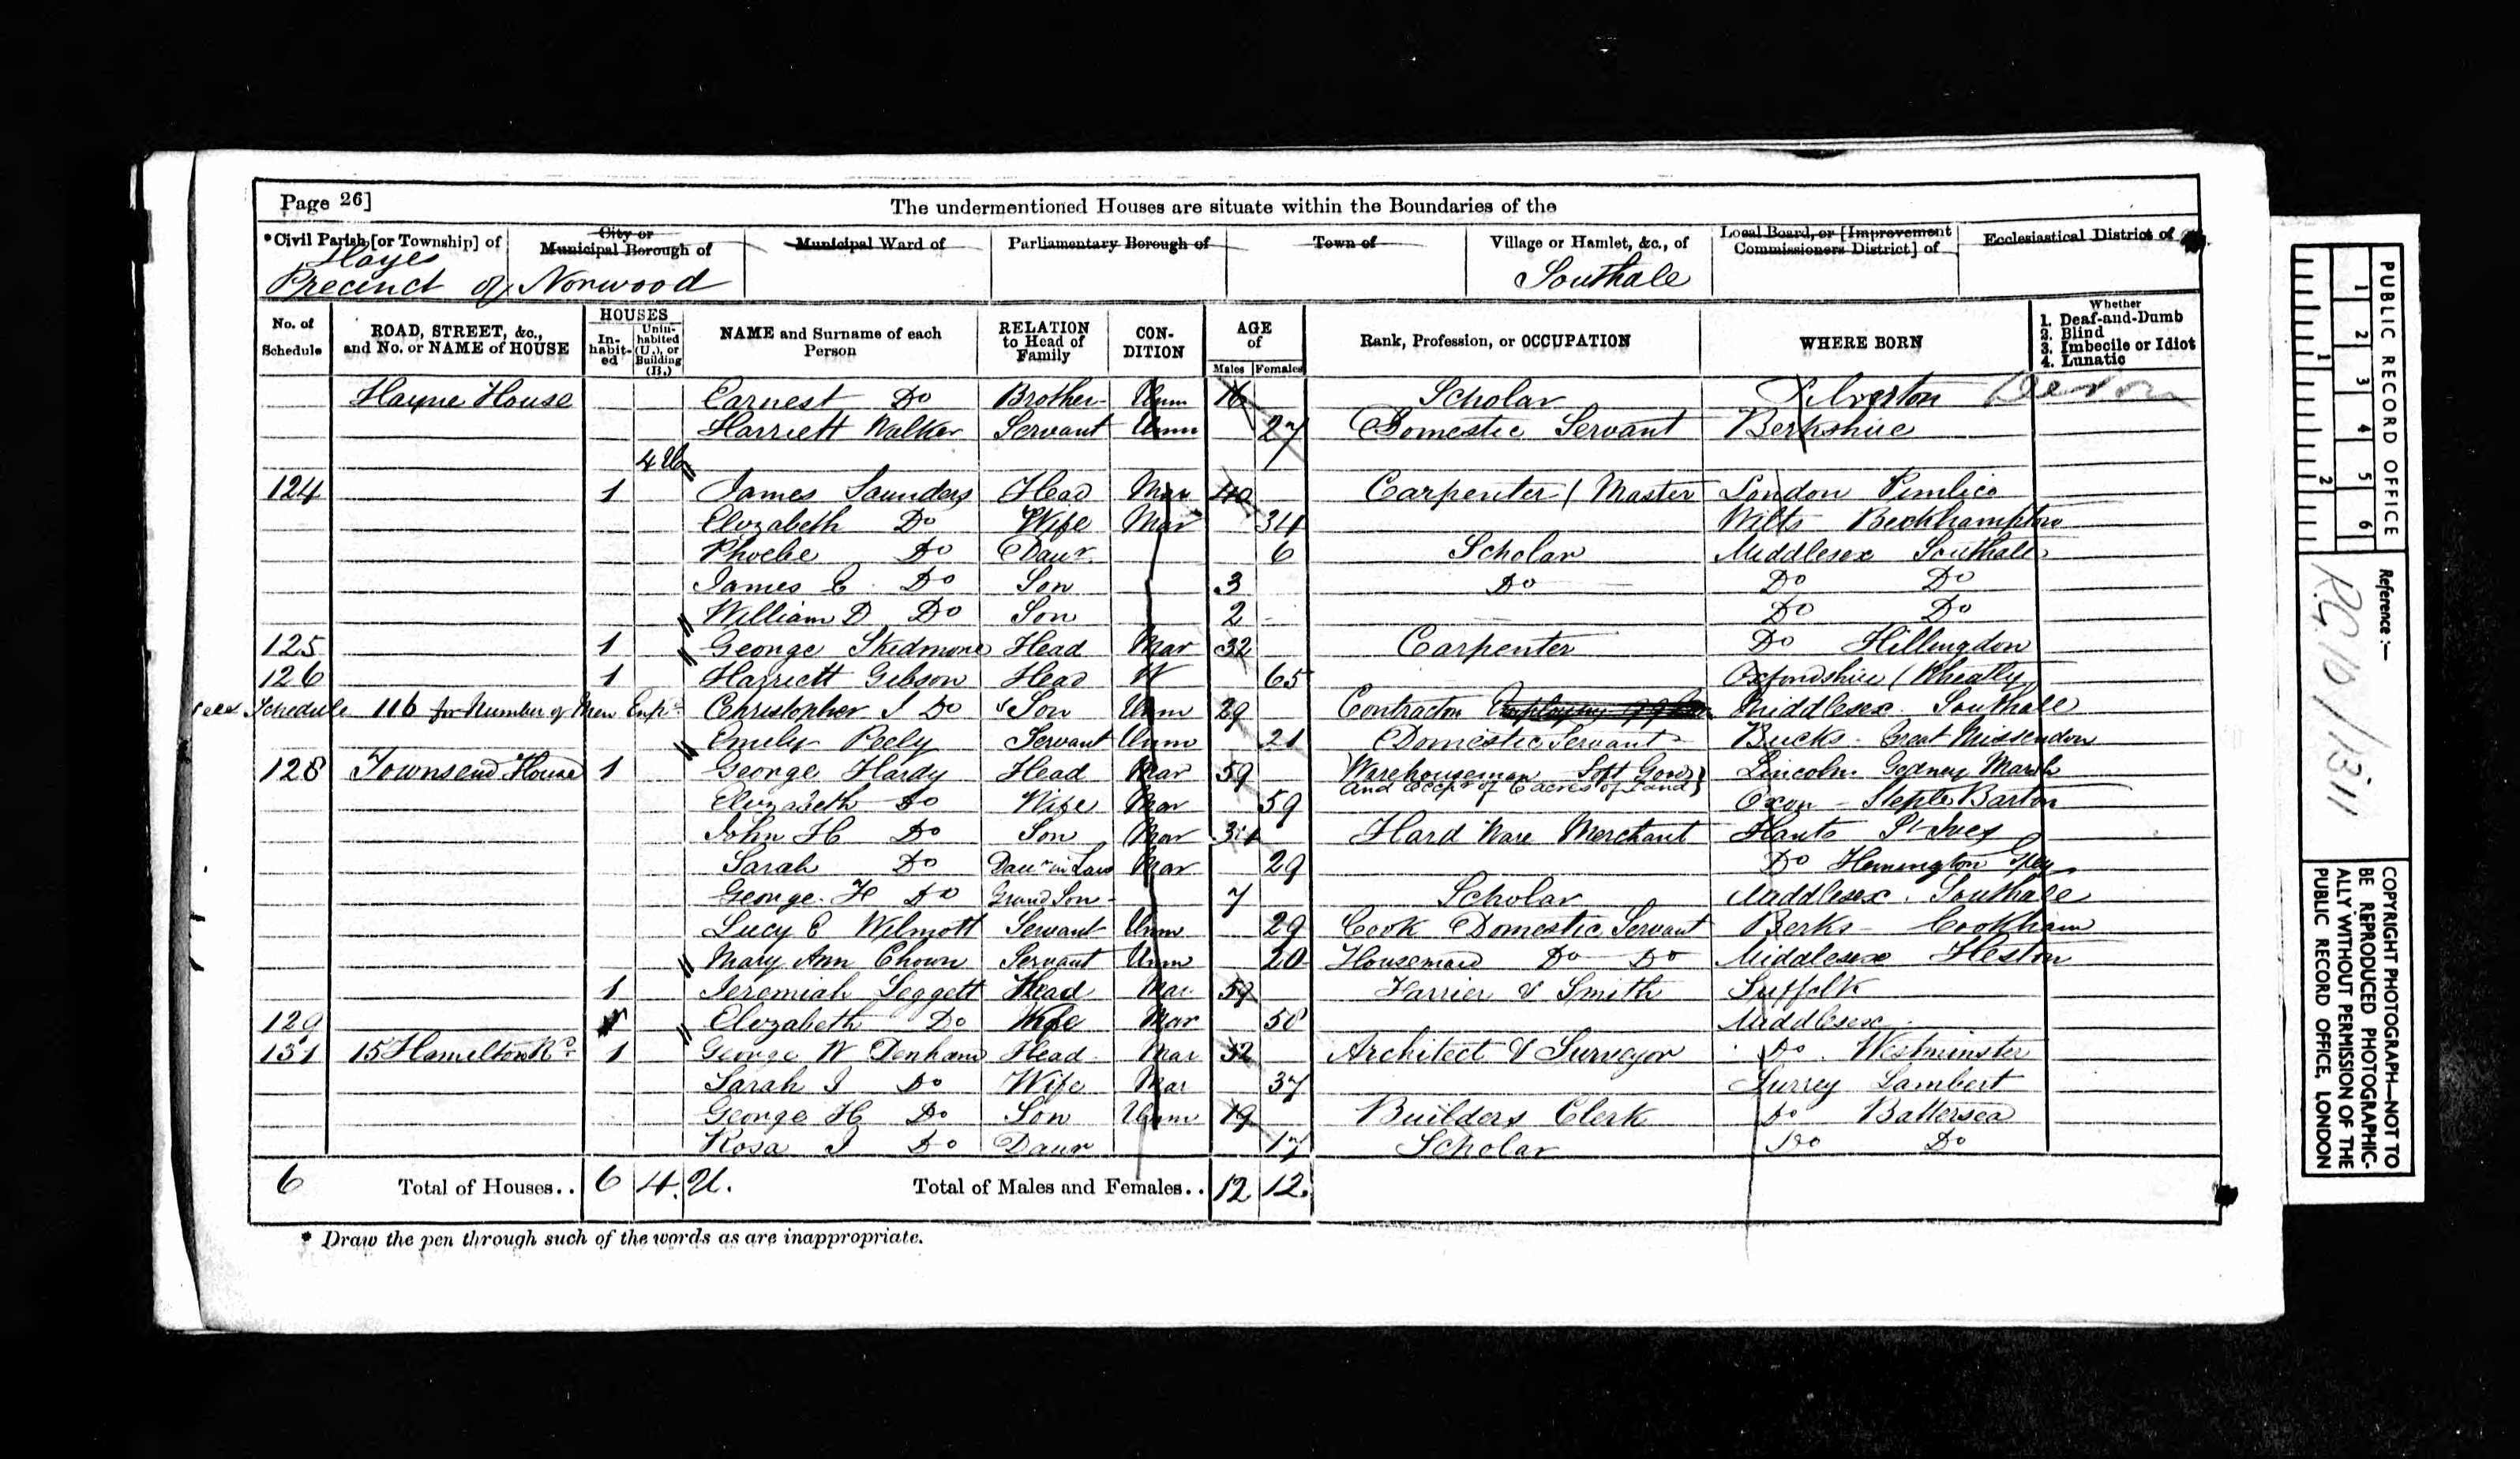 Page 26]
The undermentioned Houses are situate within the Boundaries of the
*Civil Parish [or Township] of
City or Municipal Borough of
Municipal Ward of
Parliamentary Borough of
Town of
Village or Hamlet, &c., of
Local Board, or [Improvement Commissioners District] of
Ecclesiastical District of
Hayes
Precinct of Norwood
Southale
No. of Schedule
ROAD, STREET, &c., and No. or NAME of HOUSE
HOUSES
In-habit-ed
Unin-habited (U.), or Building (B.)
NAME and Surname of each Person
RELATION to Head of Family
CON-DITION
AGE of
Males
Females
Rank, Profession, or OCCUPATION
WHERE BORN
Whether
1. Deaf-and-Dumb
2. Blind
3. Imbecile or Idiot
4. Lunatic
Hayne House Earnest Do Brother Unm 16 Scholar Silverton Devon
Harriett Walker Servant Unm 27 Domestic Servant Berkshire
4 U
124 1 James Saunders Head Mar 40 Carpenter (Master London Pimlico
Elizabeth Do Wife Mar 34 Wilts Beckhampton
Phoebe Do Daur. 6 Scholar Middlesex Southale
James C Do Son 3 Do Do Do
William D Do Son 2 Do Do
125 1 George Skedmore Head Mar 32 Carpenter Do Hillingdon
126 1 Harriett Gibson Head W 65 Oxfordshire (Wheatly
Schedule 116 for Number of Men Empd Christopher J Do Son Unm 29 Contractor Middlesex Southale
Emily Servant Unm 21 Domestic Servant Bucks Great Missendon
128 Townsend House 1 George Hardy Head Mar 59 Warehouseman Soft Goods Lincoln Gedney Marsh
and Occpr of 6 acres of Land
Elizabeth Do Wife Mar 59 Oxon Steple Barton
John H Do Son Mar Hard Ware Merchant Hants St Ives
Sarah Do Daur in Law Mar 29 Do Hemington Grey
George. H Do Grand Son 7 Scholar Middlesex. Southale
Lucy E Wilmott Servant Unm 29 Cook Domestic Servant Berks Cookham
Mary Ann Chown Servant Unm 20 Housemaid Do Do Middlesex Heston
1 Jeremiah Leggett Head Mar 59 Farrier & Smith Suffolk
129 Elizabeth Do Wife Mar 58 Middlesex
131 15 Hamilton Rd 1 George W Denham Head Mar Architect & Surveyor Do. Westminster
Sarah J Do Wife Mar 37 Surrey Lambert
George H Do Son Unm 19 Builders Clerk Do Battersea
Rosa J Do Daur 17 Scholar Do Do
6 Total of Houses.. 6 4. U. Total of Males and Females.. 12 12.
* Draw the pen through such of the words as are inappropriate.
PUBLIC RECORD OFFICE
1 2 3 4 5 6
1 2
Reference :—
R.G. 10/1311
COPYRIGHT PHOTOGRAPH—NOT TO
BE REPRODUCED PHOTOGRAPHIC-
ALLY WITHOUT PERMISSION OF THE
PUBLIC RECORD OFFICE, LONDON